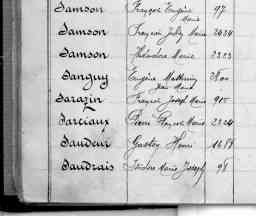 Samson François Eugène Marie 97
Samson François Julien Marie 2434
Samson Théodore Marie 2223
Sanguy Eugène Mathurin Jean Marie
Sarazin François Joseph Marie 910
Sarciaux Pierre François Marie 2224
Saudeur Gustave Henri 1688
Saudrais Isidore Marie Joseph 98